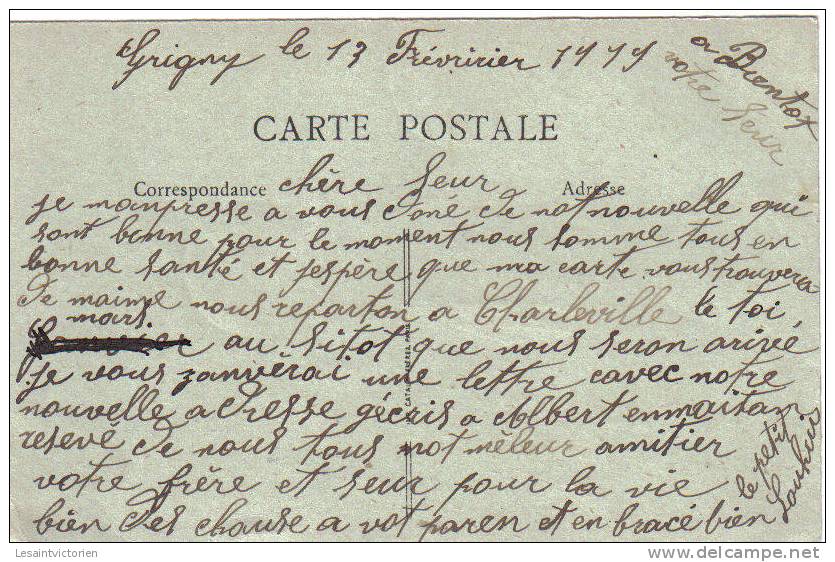 Grigny le 13 Frévririer 1919
a Bientot
votre Seur
CARTE POSTALE
Correspondance
Adresse
chère Seur
je manpresse a vous doné de not nouvelle qui
sont bonne pour le moment nous somme tous en
bonne santé et jespère que ma carte vous trouvera
de maime nous reparton a Charleville le toi
mars
au sitot que nous seron arivé
je vous zanvèrai une lettre cavec notre
nouvelle adresse gécris a Albert enmaitan
resevé de nous tous not mèleur amitier
votre frère et seur pour la vie
le petit
bien des chause a vot paren et en bracé bien
Lesaintvictorien
www.delcampe.net